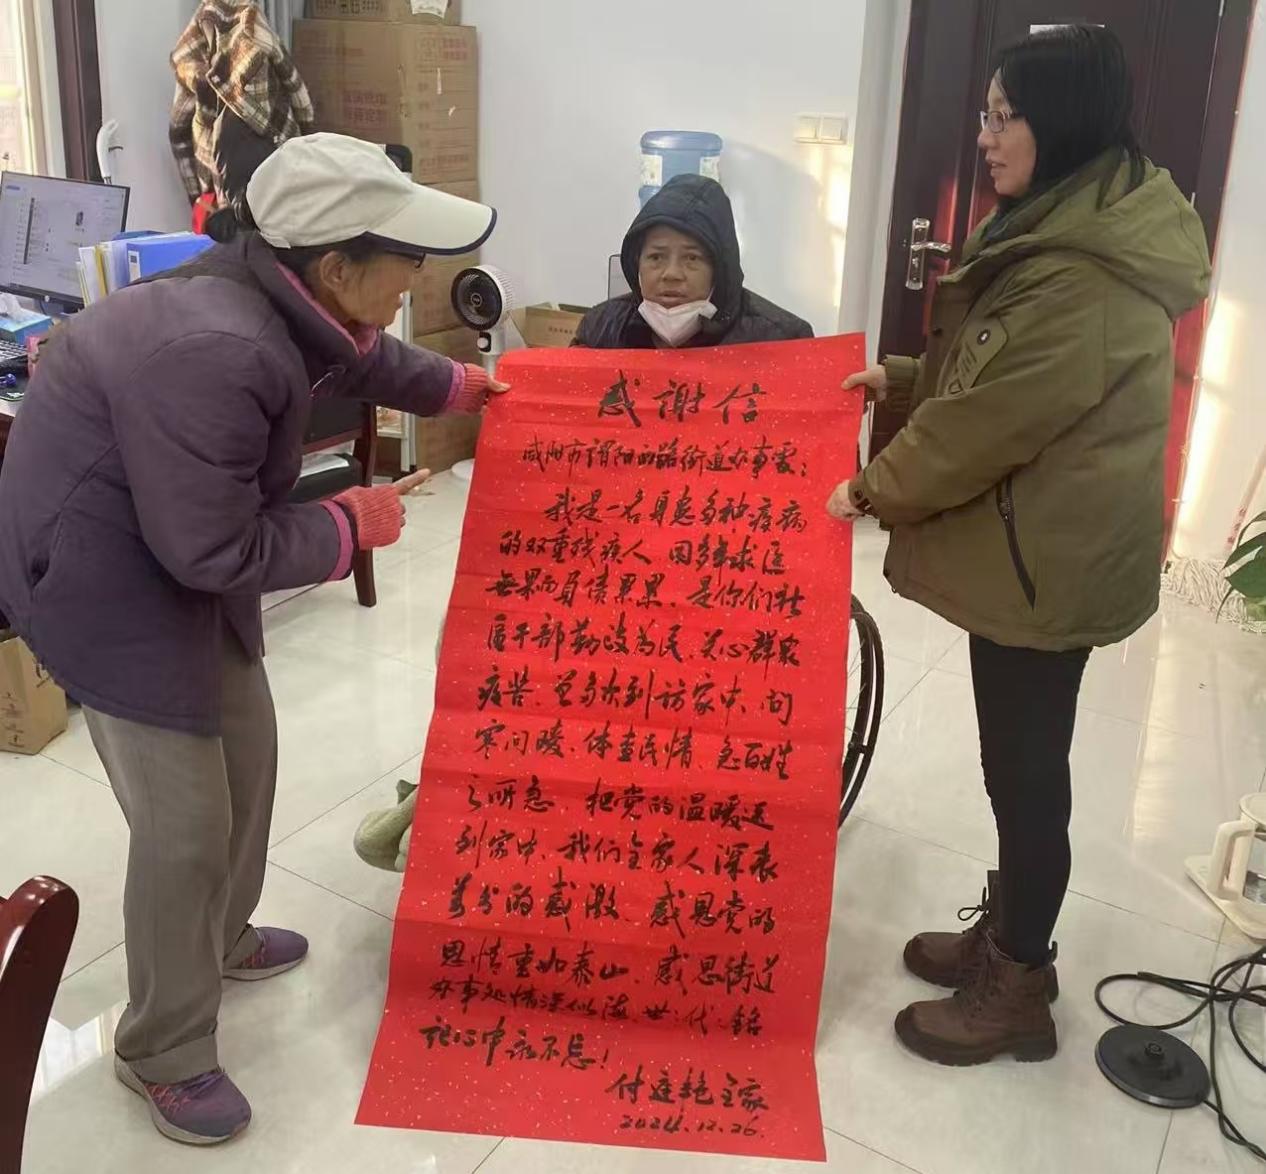 感謝信
咸阳市渭阳西路街道办事處:
我是一名身患多种疫病
的双重残疾人因多年求医
無果而身债累累、是你们社
區干部勤政為民、关心群衆
疾苦、曾多次到访家中、问
寒问暖、体查民情、急百姓
之所急、把党的温暖送
到家中、我们全家人深表
萬分的感激、感恩党的
恩情重如泰山、感恩街道
办事处情深似海世:代:銘
记心中永不忘!
付庭艳全家
2024.12.26.